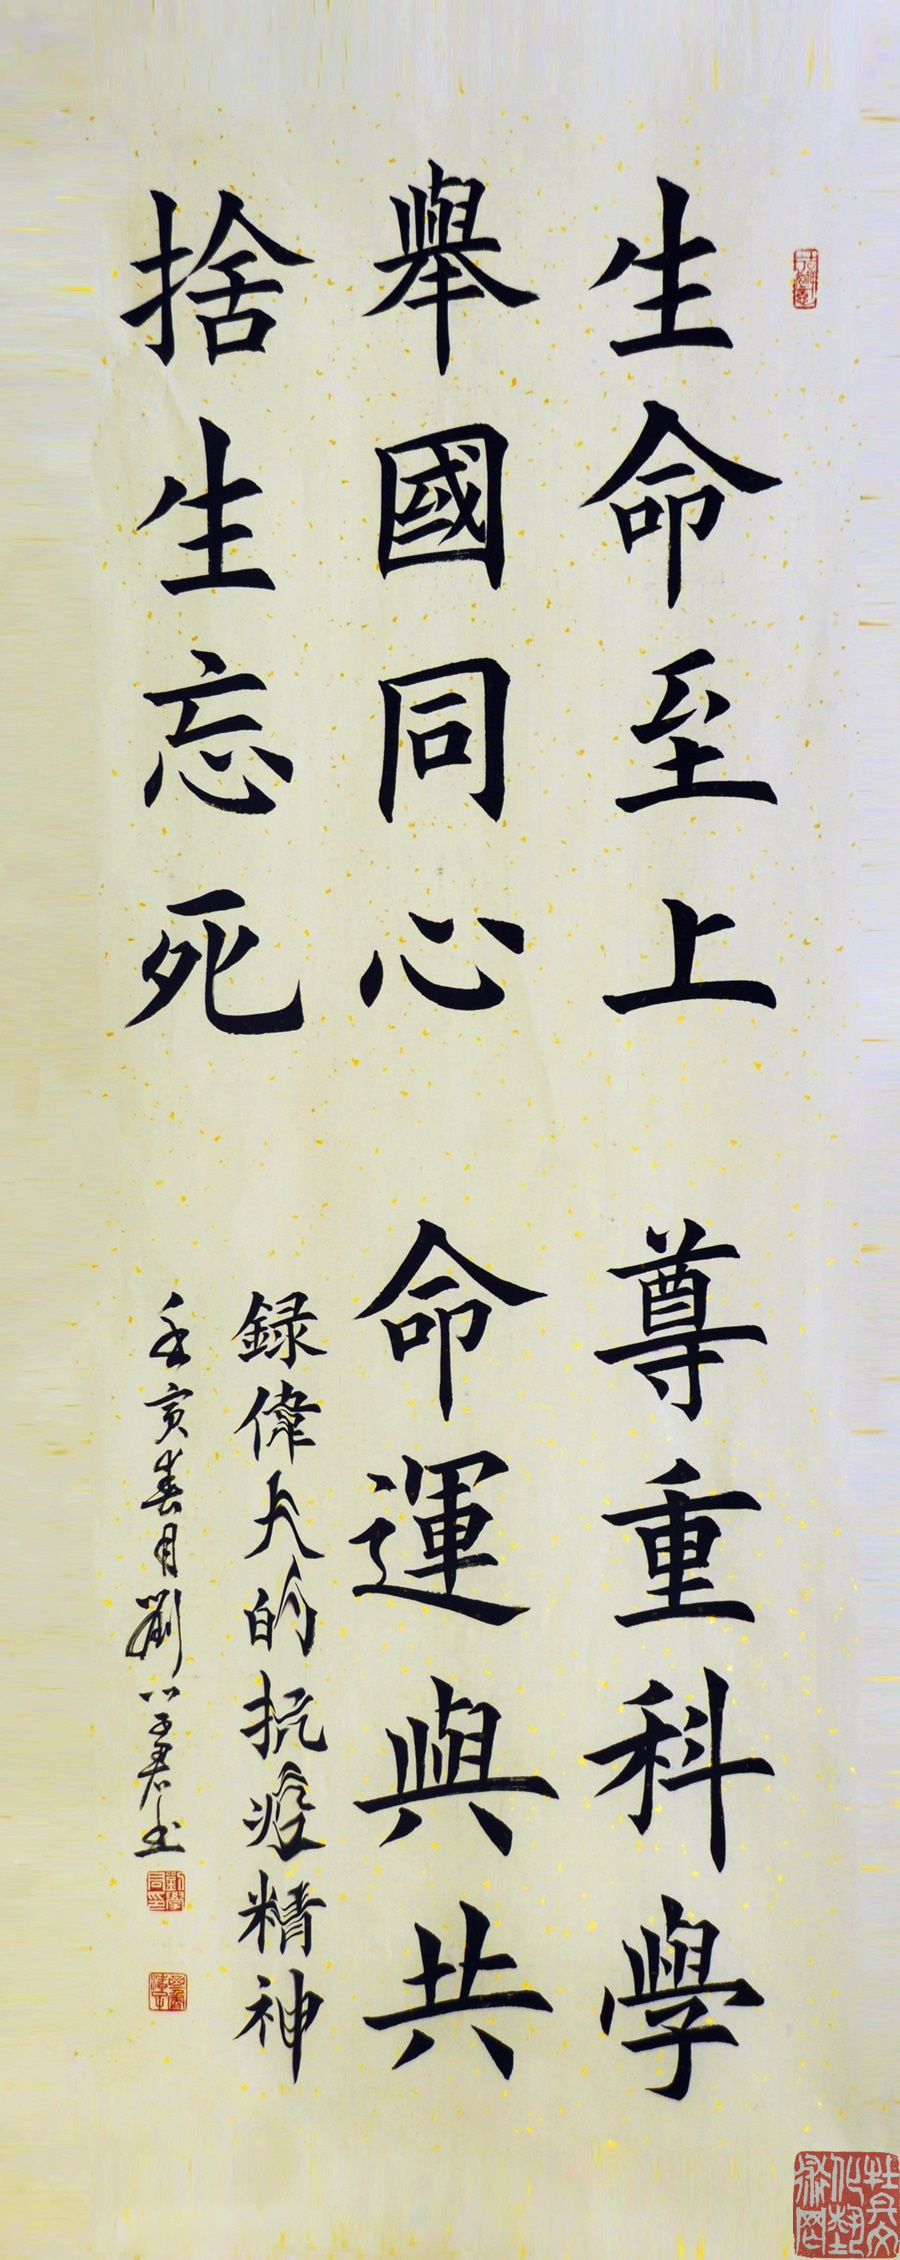 生命至上 尊重科學
舉國同心 命運與共
捨生忘死
録偉大的抗疫精神
壬寅春月劉學君书